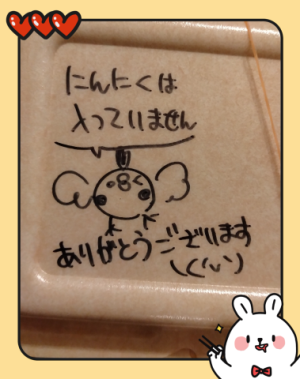 にんにくは
入っていません
ありがとうございます